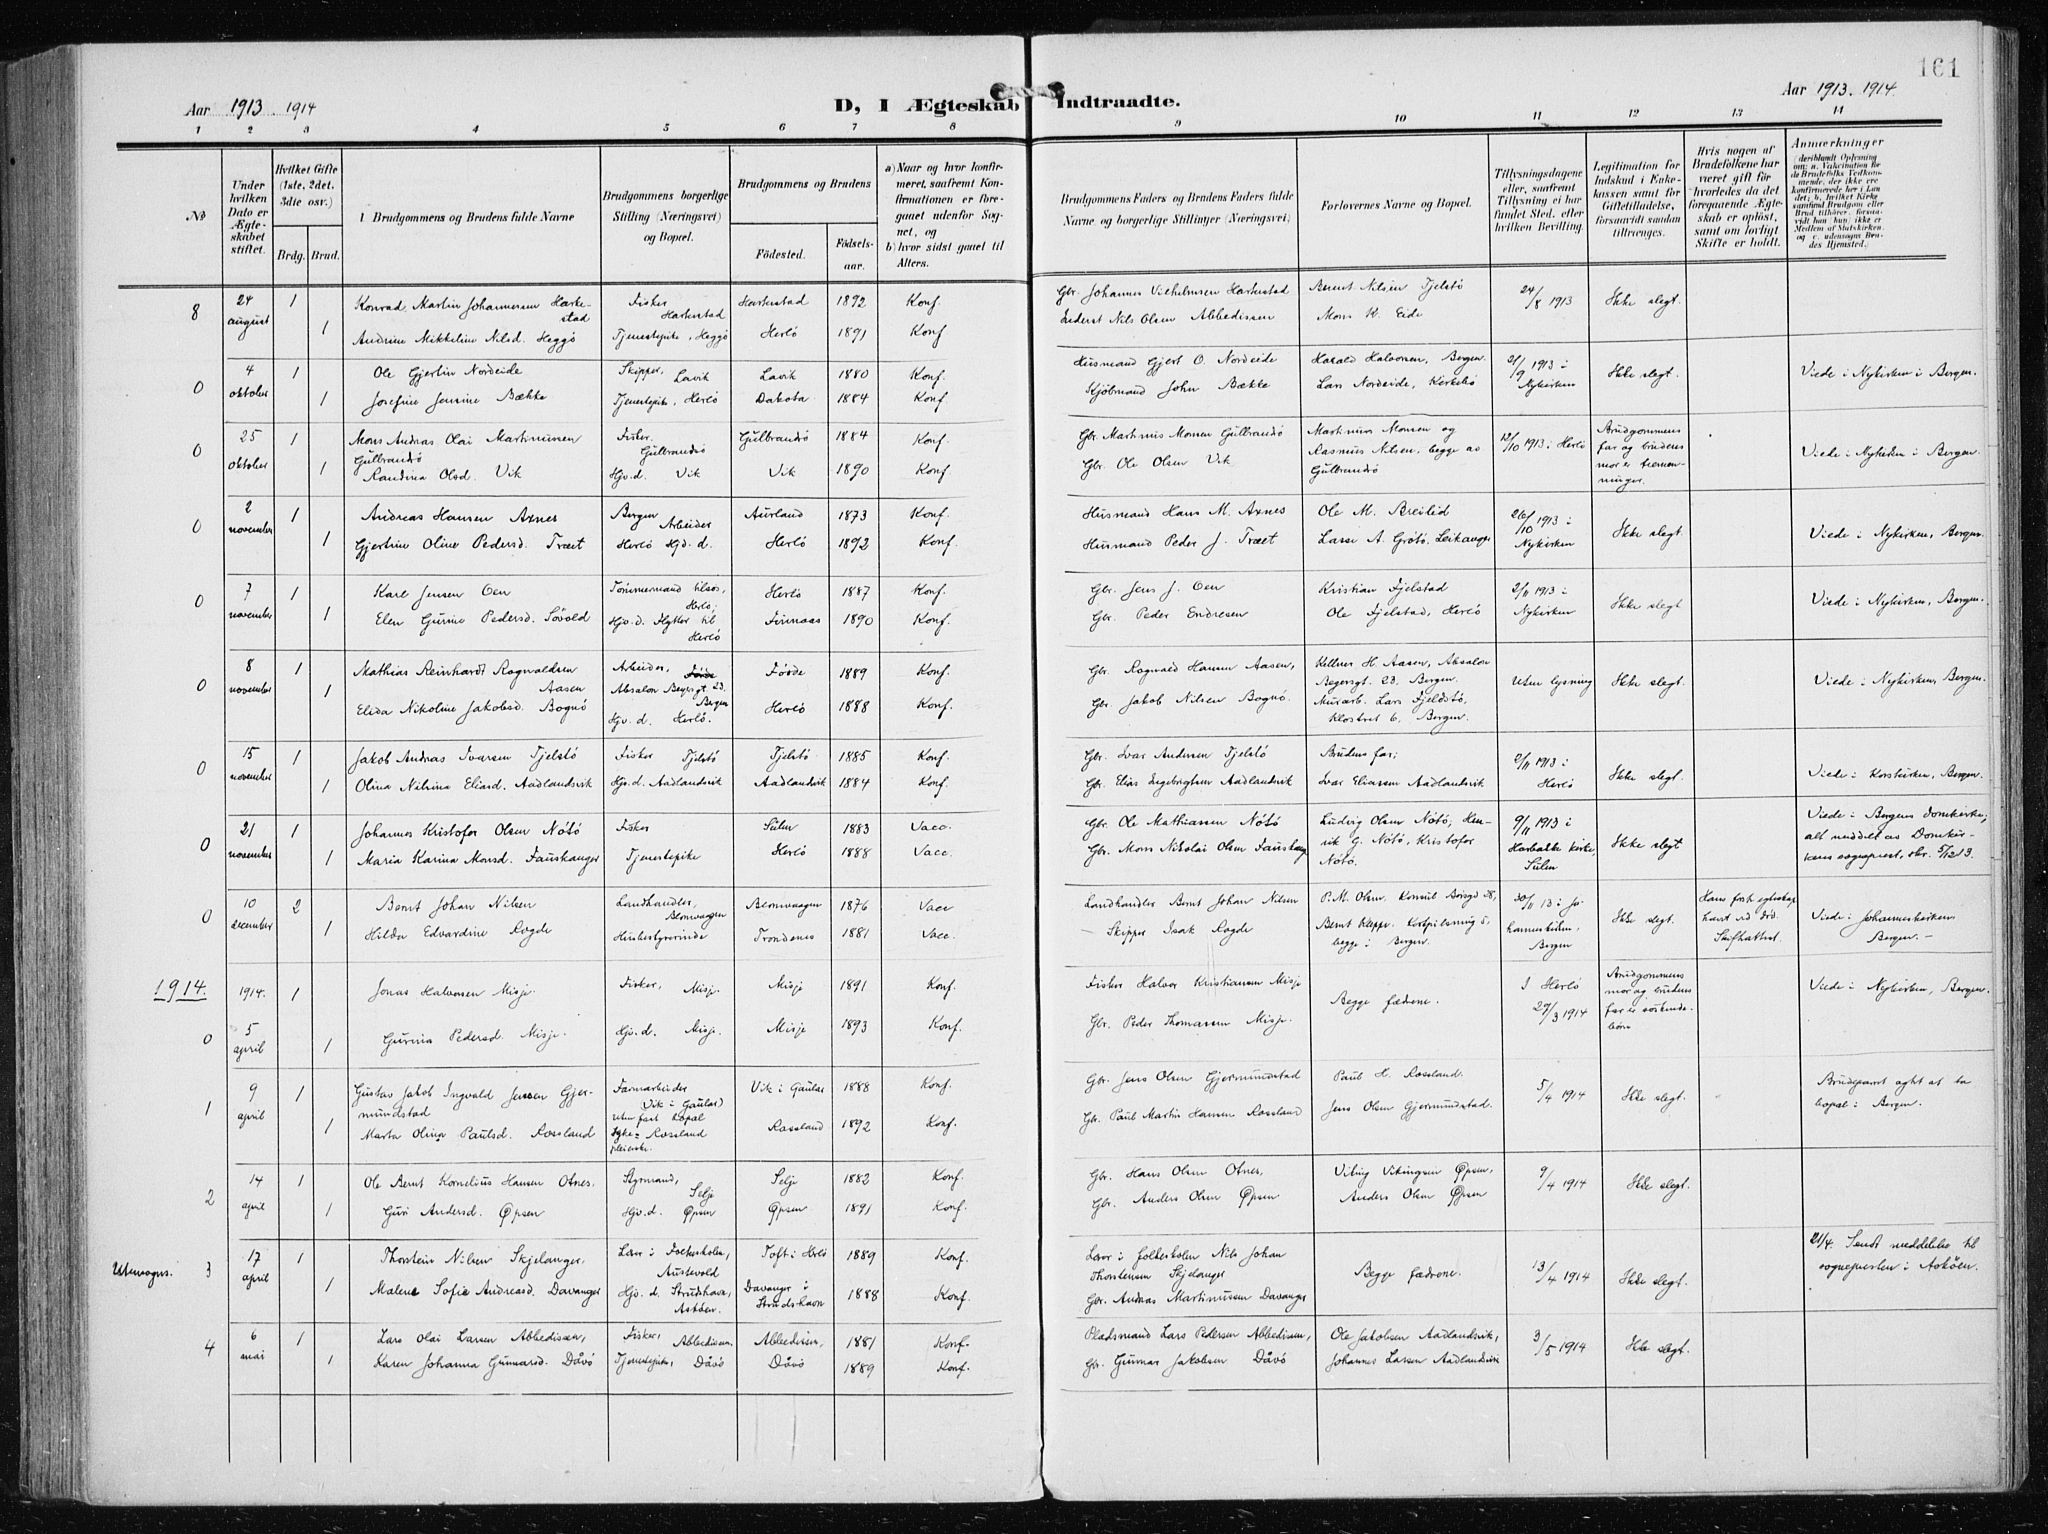 161
Aar 1913. 1914
D, I Ægteskab Indtraadte.
Aar 1913. 1914.
1 2 3 4 5 6 7 8 9 10 11 12 13 14
№
Under hvilken Dato er Ægteskabet stiftet.
Hvilket Gifte (1ste, 2det, 3die osv.)
Brdg. Brud.
Brudgommens og Brudens fulde Navne
Brudgommens borgerlige Stilling (Næringsvei) og Bopæl.
Brudgommens og Brudens
Födested.
Födselsaar.
a) Naar og hvor konfirmeret, saafremt Konfirmationen er foregaaet udenfor Sognet, og
b) hvor sidst gaaet til Alters.
Brudgommens Faders og Brudens Faders fulde Navne og borgerlige Stillinger (Næringsvei)
Forlovernes Navne og Bopæl.
Tillysningsdagene eller, saafremt Tillysning ei har fundet Sted, efter hvilken Bevilling.
Legitimation for Indskud i Enkekassen samt for Giftetilladelse, forsaavidt saadan tiltrænges.
Hvis nogen af Brudefolkene har været gift för hvorledes da det foregaaende Ægteskab er oplöst, samt om lovligt Skifte er holdt.
Anmærkninger
8 24 august 1 Konrad Martin Johannesen Harkestad Fisker Harkestad Harkestad 1892 Konf. Gbr. Johannes Vilhelmsen Harkestad Berent Nilsen Tjelstö 24/8 1913 Ikke slegt.
1 Andrine Mikkeline Nilsd. Heggö Tjenestepike, Heggö Herlö 1891 Konf Inderst Nils Olsen Abbedissen Mons K. Eide
0 4 oktober 1 Ole Gjertin Nordeide Skipper, Lavik Lavik 1880 Konf. Husmand Gjert O. Nordeide Harald Halvorsen, Bergen. 21/9 1913 i Nykirken Ikke slegt. Viede i Nykirken i Bergen.
1 Josefine Jensine Bække Tjenestepike, Herlö Dakota 1884 Konf Kjöbmand John Bække Lars Nordeide, Kirkebö
0 25 oktober 1 Mons Andras Olai Martinussen Gulbrandsö Fisker. Gulbrandsö Gulbrandsö 1884 Konf. Gbr. Martinus Monsen Gulbrandsö Martinus Monsen og Rasmus Nilsen, begge av Gulbrandsö 12/10 1913 i Herlö Brudgommens far og brudens mor er tremenninger. Viede i Nykirken i Bergen.
1 Randina Olsd. Vik Hjv.d. Vik Vik 1890 Konf Gbr. Ole Olsen Vik
0 2 november 1 Andreas Hansen Axnes Bergen Arbeider Aurland 1873 Konf. Husmand Hans M. Axnes Ole M. Breilid 26/10 1913 i Nykirken Ikke slegt. Viede i Nykirken, Bergen.
1 Gjertine Oline Pedersd. Træet Herlö Hjv.d. Herlö 1892 Konf. Husmand Peder J. Træet Lasse A. Grötö, Leikanger
0 7 november 1 Karl Jensen Oen Tömmermand tilsös, Herlö; Herlö 1887 Konf. Gbr. Jens J. Oen Kristian Fjelstad 2/11 1913 i Nykirken Ikke slegt Viede i Nykirken, Bergen.
1 Elen Gurine Pedersd. Sövold Hjv.d. Flytter til Herlö Finnaas 1890 Konf. Gbr. Peder Endresen Ole Fjelstad, Herlö
0 8 november 1 Mathias Reinhardt Ragnvaldsen Aasen Arbeider, Förde Absalon Beyersgt 23. Bergen Förde 1889 Konf. Gbr. Ragnvald Hansen Aasen, Kellner H. Aasen, Absalon Beyersgt. 23, Bergen. Uten lysning Ikke slegt. Viede i Nykirken, Bergen.
1 Elida Nikoline Jakobsd. Bognö Hjv.d. Herlö. Herlö 1888 Konf. Gbr. Jakob Nilsen Bognö. Murarb. Lars Fjeldstö, Klostret 6, Bergen.
0 15 november 1 Jakob Andras Ivarsen Tjelstö Fisker Tjelstö Tjelstö 1885 Konf. Gbr. Ivar Andersen Tjelstö Brudens far; 2/11 1913 i Herlö Ikke slegt. Viede i Korskirken, Bergen.
1 Olina Nilsina Eliasd. Aadlandsvik Hjv.d. Aadlandsvik Aadlandsvik 1884 Konf. Gbr. Elias Ingebrigtsen Aadlandsvik Ivar Eliassen Aadlandsvik
0 21 november 1 Johannes Kristofer Olsen Nötö Fisker Sulen 1883 Vacc. Gbr. Ole Mathiassen Nötö Ludvig Olsen Nötö; Henrik G. Nötö, Kristofer Nötö. 9/11 1913 i Harbakke kirke, Sulen Ikke slegt Viede i Bergens Domkirke, alt meddelt av Domkirkens sogneprest, skr. 5/12 13.
1 Maria Karina Monsd. Fauskanger Tjenestepike Herlö 1888 Vacc. Gbr. Mons Nikolai Olsen Fauskanger
0 10 december 2 Bernt Johan Nilsen Landhandler, Blomvaagen Blomvaagen 1876 Vacc Landhandler Bernt Johan Nilsen P.M. Olsen, Konsul Börsgd 28, Bernt Kleppe, begge i Bergen. 30/11 13 i Johanneskirken, Bergen Ikke slegt. Hans förste egteskap hævet ved död. Viede i Johanneskirken Bergen.
1 Hilda Edvardine Rogde Husbestyrerinde Trondenes 1881 Vacc. Skipper Isak Rogde
1914.
0 1914. 5 april 1 Jonas Halvorsen Misje. Fisker, Misje. Misje 1891 Konf. Fisker Halvor Kristiansen Misje Begge fædrene. I Herlö 29/3 1914 Brudgommens mor og brudens far er söskendebörn Viede i Nykirken, Bergen.
1 Gurina Pedersd. Misje. Hjv.d. Misje. Misje 1893 Konf. Gbr. Peder Thomassen Misje.
1 9 april 1 Gustav Jakob Ingvald Jensen Gjermundstad Farmarbeider Vik i Gaular) uten fast bopæl Vik i Gaular 1888 Konf. Gbr. Jens Olsen Gjermundstad Paul H. Rossland. 5/4 1914 Ikke slegt. Brudeparret agter at ta bopæl i Bergen.
1 Marta Olina Paulsd. Rossland Sykepleierske. Rossland Rossland 1892 Konf. Gbr. Paul Martin Hansen Rossland Jens Olsen Gjermundstad.
2 14 april 1 Ole Bernt Kornelius Hansen Otnes. Styrmand, Selje Selje 1882 Konf. Gbr. Hans Olsen Otnes, Viking Vikingsen Øpsen, 9/4 1914 Ikke slegt.
1 Guro Andersd. Øpsen Hjv.d. Øpsen Øpsen 1891 Konf. Gbr. Anders Olsen Øpsen Anders Olsen Øpsen
Utensogns. 3 17 april 1 Thorstein Nilsen Skjelanger, Lærer i Folkeskolen, Austevold Toft i Herlö 1889 Konf. Lærer i folkeskolen Nils Johan Thorstensen Skjelanger Begge fædrene. 13/4 1914 Ikke slegt. 21/4. Sendt meddelelse til sognepresten i Asköen.
1 Malene Sofie Andreasd. Davanger Hjv.d. Strudshavn, Asköen. Davanger i Strudshavn 1888 Konf. Gbr. Andreas Martinussen Davanger
4 6 mai 1 Lars Olai Larsen Abbedissen, Fisker, Abbedissen, Abbedissen, 1881 Konf. Pladsmand Lars Pedersen Abbedissen, Ole Jakobsen Aadlandsvik, 3/5 1914 Ikke slegt.
1 Karen Johanna Gunnarsd. Dåvö Tjenestepike, Dåvö Dåvö 1889 Konf. Gbr. Gunnar Jakobsen Dåvö Johannes Larsen Aadlandsvik